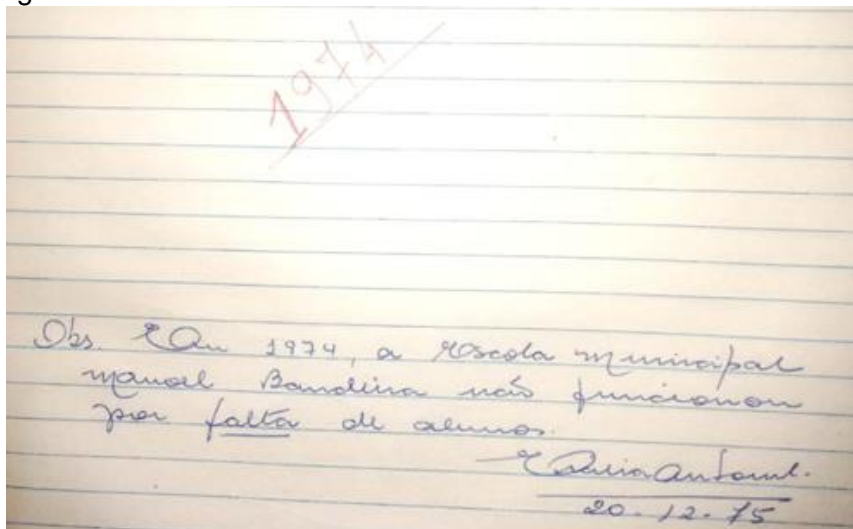 1974
Obs. Em 1974, a Escola municipal
manoel Bandeira não funcionou
por falta de alunos.
20-12-75